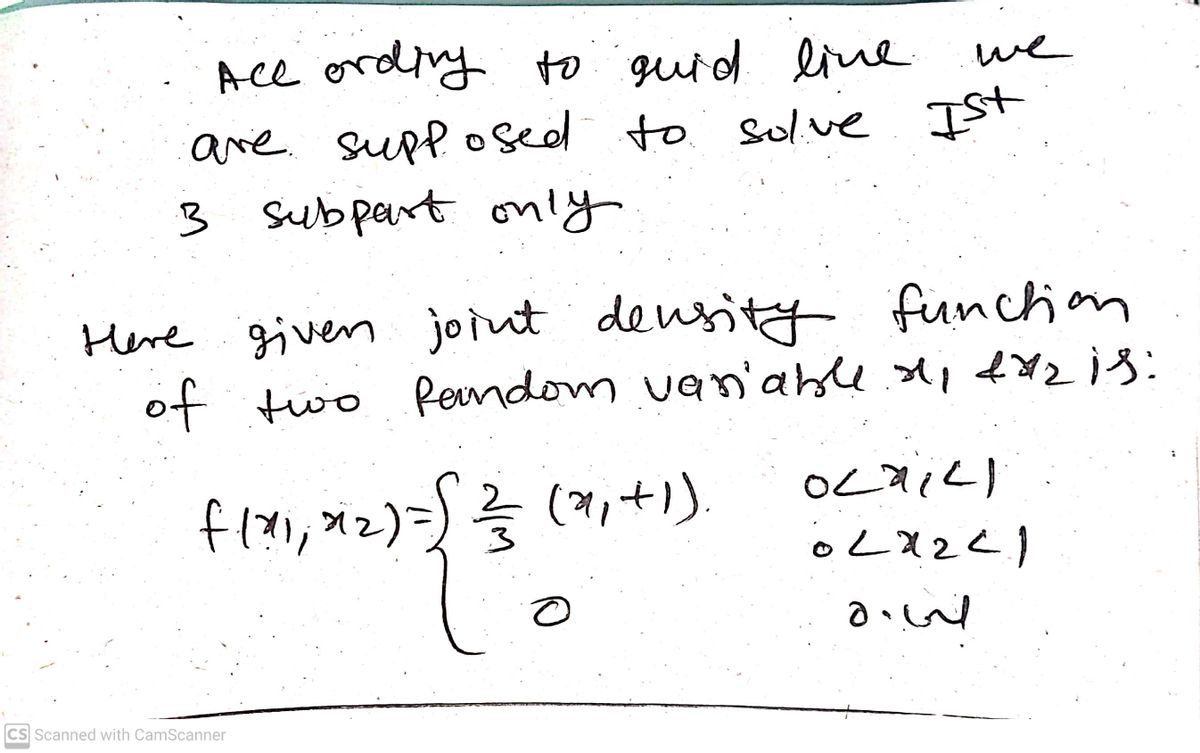 Acc ording to guid line we
are supposed to solve Ist
3 subpart only
Here given joint density function
of two Random variable x1 & x2 is:
f(x1, x2) = { 2/3 (x1+1) 0<x1<1
0<x2<1
0 o.w
CS Scanned with CamScanner